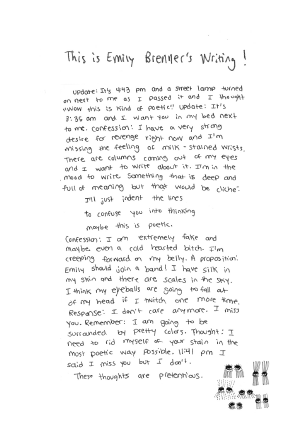 This is Emily Brenner's Writing!
Update: It's 4:43 pm and a street lamp turned
on next to me as I passed it and I thought
"wow this is kind of poetic!" Update: It's
3:36 am and I want you in my bed next
to me. Confession: I have a very strong
desire for revenge right now and I'm
missing the feeling of milk-stained wrists.
There are columns coming out of my eyes
and I want to write about it. I'm in the
mood to write something that is deep and
full of meaning but that would be cliche:
I'll just indent the lines
to confuse you into thinking
maybe this is poetic.
Confession: I am extremely fake and
maybe even a cold hearted bitch. I'm
creeping forward on my belly. A proposition:
Emily should join a band! I have silk in
my skin and there are scales in the sky.
I think my eyeballs are going to fall out
of my head if I twitch one more time.
Response: I don't care anymore. I miss
you. Remember: I am going to be
surrounded by pretty colors. Thought: I
need to rid myself of your stain in the
most poetic way possible. 11:41 pm I
said I miss you but I don't.
These thoughts are pretentious.